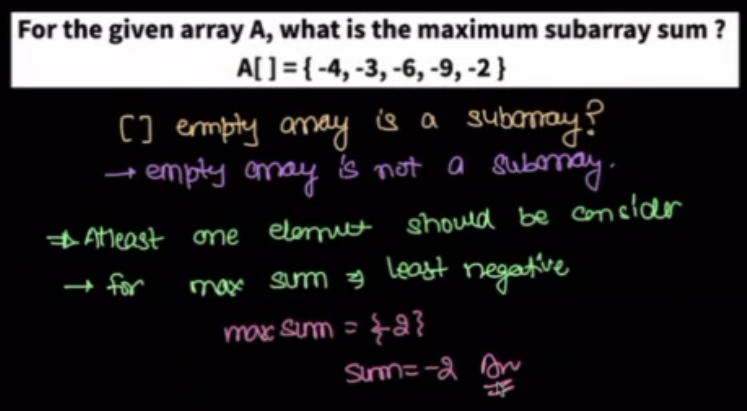 For the given array A, what is the maximum subarray sum ?
A[ ] = { -4, -3, -6, -9, -2 }
[ ] empty array is a subarray?
→ empty array is not a subarray.
⇒ Atleast one element should be consider
→ for max sum ⇒ least negative
max sum = {-2}
sum = -2 Ans